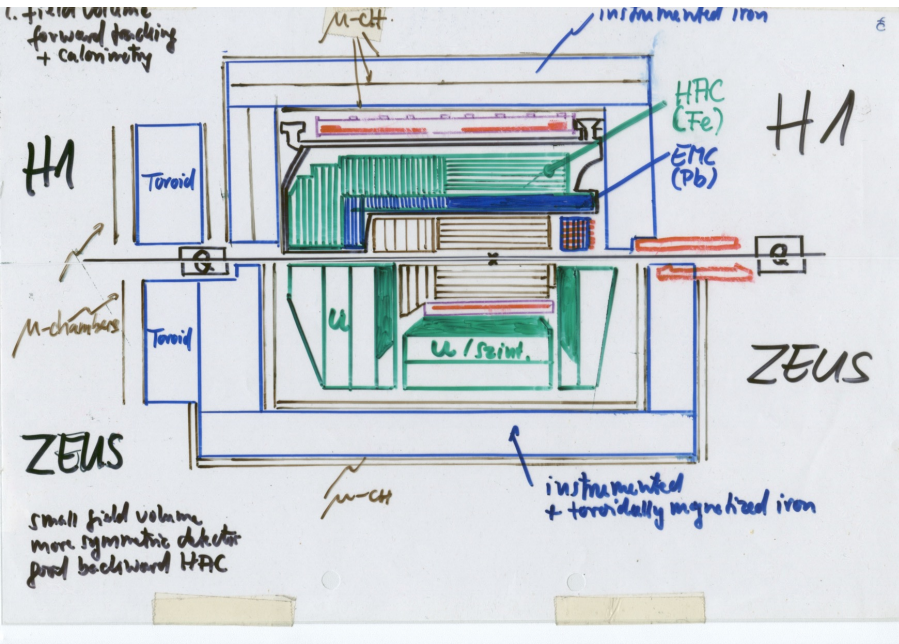 field volume
forward tracking
+ calorimetry
μ-CH
instrumented iron
HAC
(Fe)
EMC
(Pb)
H1
H1
Toroid
Q
Q
μ-chambers
Toroid
U
U/Szint.
ZEUS
ZEUS
μ-CH
instrumented
+ toroidally magnetized iron
small field volume
more symmetric detector
good backward HAC